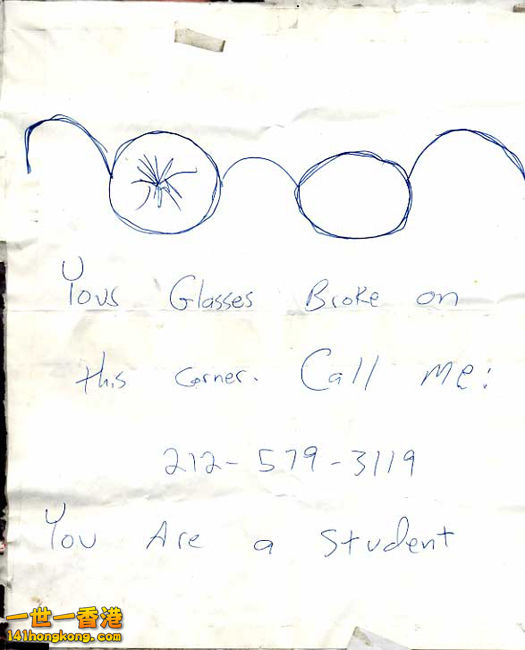 Your Glasses Broke on
this corner. Call me:
212-579-3119
You Are a Student
一世一香港
141hongkong.com